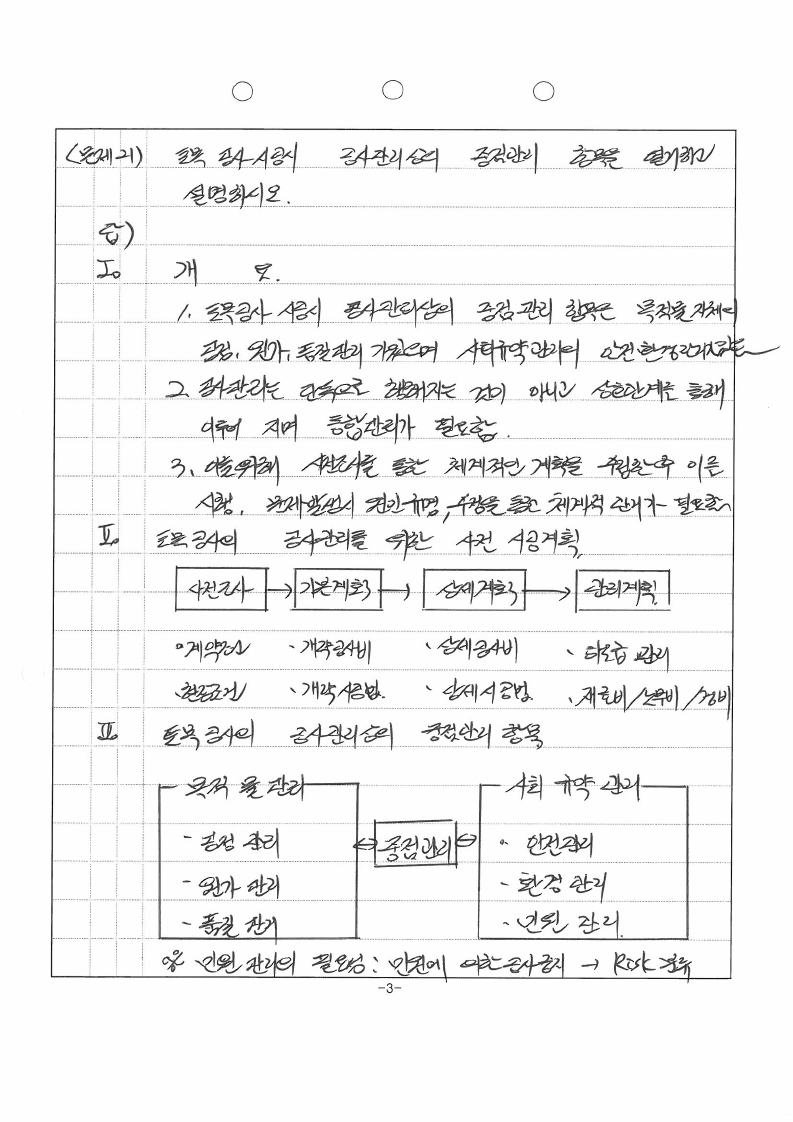 (문제 21) 토목 공사 시공시 공사관리상의 중점관리 항목을 열거하고
설명하시오.
답)
I. 개 요.
1. 토목공사 시공시 공사관리상의 중점 관리 항목은 목적물 자체의
공정, 원가, 품질관리 가 있으며 사회규약 관리의 안전 환경관리
2. 공사관리는 단독으로 행해지는 것이 아니고 상호단계를 통해
이루어 지며 통합관리가 필요함.
3. 이를위해 사전조사를 통한 체계적인 계획을 수립한후 이를
시행, 문제발생시 원인규명, 수정을 통한 체계적 관리가 필요함
II. 토목공사의 공사관리를 위한 사전 시공계획
사전조사 → 기본계획 → 상세계획 → 관리계획
·계약조건 ·개략공사비 ·상세공사비 ·하도급 관리
·현장조건 ·개략시공법. ·상세시공법. ·재료비/노무비/경비
III. 토목공사의 공사관리상의 중점관리 항목
목적물 관리 사회 규약 관리
- 공정 관리 ⇔ 중점관리 ⇔ · 안전관리
- 원가 관리 - 환경 관리
- 품질 관리 - 민원 관리.
※ 민원 관리의 필요성 : 민원에 의한 공사중지 → Risk 분류
-3-